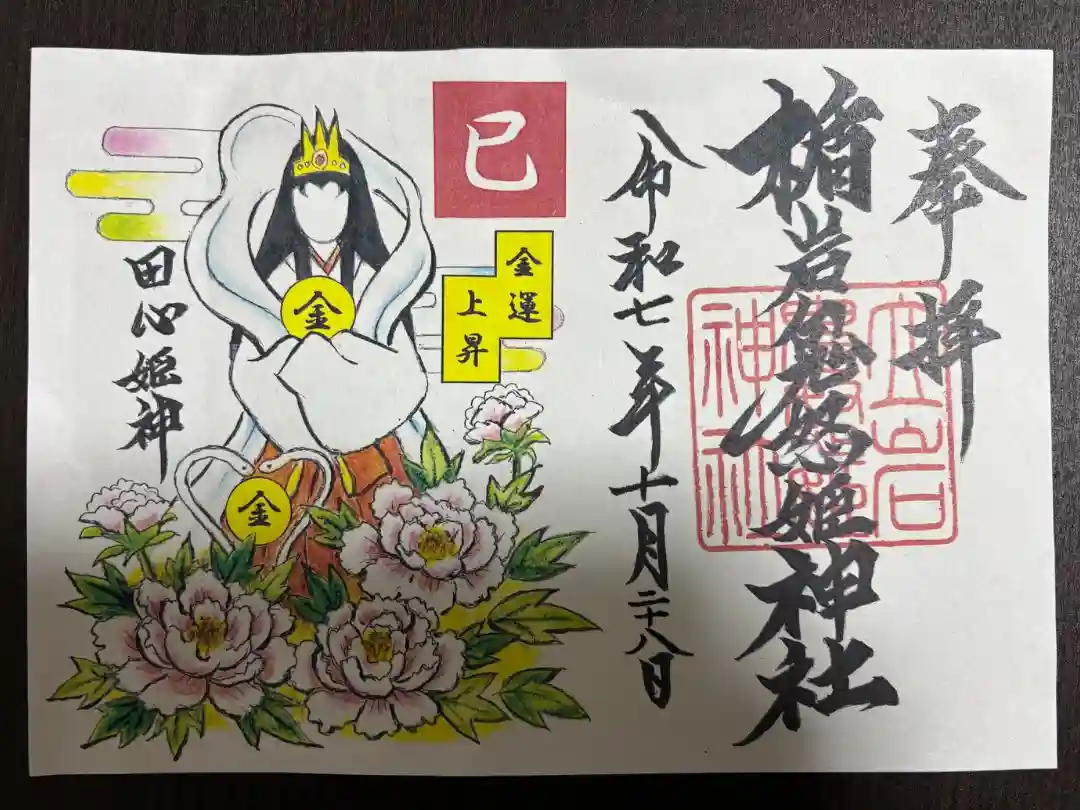 奉拝
楯岩鬼怒姫神社
神社
令和七年十月二十八日
巳
金運
上昇
金
金
田心姫神